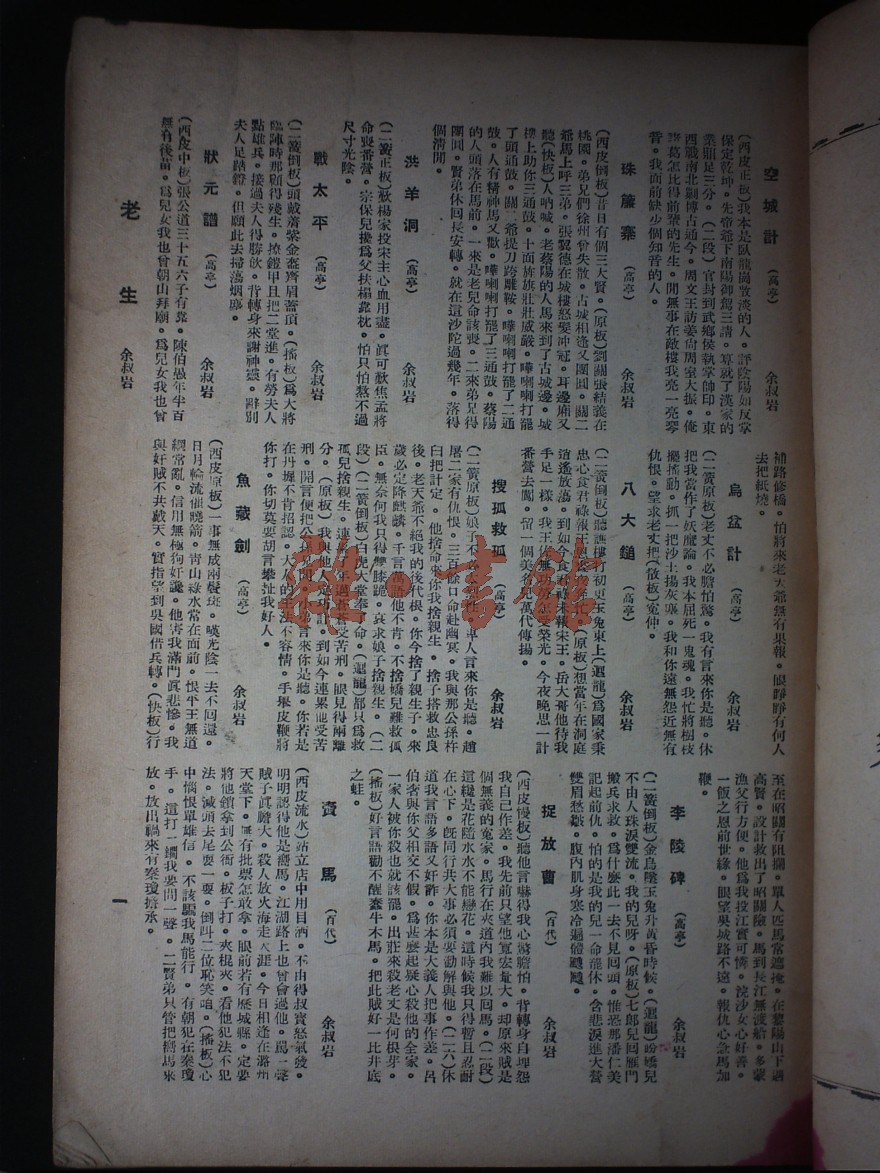 空城計 (高亭) 余叔岩
(西皮正板)我本是臥龍崗散淡的人。評陰陽如反掌
保定乾坤。先帝爺下南陽御駕三請。算就了漢家的
業鼎足三分。(二段)官封到武鄉侯執掌帥印。東
西戰南北剿博古通今。周文王訪姜尚周室大振。俺
諸葛怎比得前輩的先生。閒無事在敵樓我亮一亮琴
音。我面前缺少個知音的人。
珠簾寨 (高亭) 余叔岩
(西皮倒板)昔日有個三大賢。(原板)劉關張結義在
桃園。弟兄們徐州曾失散。古城相逢又團圓。關二
爺馬上呼三弟。張翼德在城樓怒髮冲冠。耳邊廂又
聽(快板)人吶喊。老蔡陽的人馬來到了古城邊。城
樓上助你三通鼓。十面旌旗壯壯威嚴。嘩喇喇打罷
了頭通鼓。關二爺提刀跨雕鞍。嘩喇喇打罷了二通
鼓。人有精神馬又歡。嘩喇喇打罷了三通鼓。蔡陽
的人頭落在馬前。一來是老兒命該喪。二來弟兄得
團圓。賢弟休回長安轉。就在這沙陀過幾年。落得
個清閒。
洪羊洞 (高亭) 余叔岩
(二簧正板)歎楊家投宋主心血用盡。眞可歎焦孟將
命喪番營。宗保兒攙爲父扶榻靠枕。怕只怕熬不過
尺寸光陰。
戰太平 (高亭) 余叔岩
(二簧倒板)頭戴着紫金盔齊眉蓋頂。(搖板)爲大將
臨陣時那顧得殘生。撩鎧甲且把二堂進。有勞夫人
點雄兵。接過夫人得勝飲。背轉身來謝神靈。辭別
夫人足踏鐙。但願此去掃蕩烟塵。
狀元譜 (高亭) 余叔岩
(西皮中板)張公道三十五六子有靠。陳伯愚年半百
無有後苗。爲兒女我也曾朝山拜廟。爲兒女我也曾
老生
補路修橋。怕將來老天爺無有果報。眼睜睜有何人
去把紙燒。
烏盆計 (高亭) 余叔岩
(二簧原板)老丈不必膽怕驚。我有言來你是聽。休
把我當作了妖魔論。我本屈死一鬼魂。我忙將樹枝
擺搖動。抓一把沙土揚灰塵。我和你遠無怨近無有
仇恨。望求老丈把(散板)寃伸。
八大鎚 (高亭) 余叔岩
(二簧倒板)聽譙樓打初更玉兔東上(迴龍)爲國家秉
忠心食君祿報王恩
(原板)想當年在洞庭
逍遙放蕩。到如今食君祿未報宋王。岳大哥他待我
手足一樣。我王佐無功勞怎受榮光。今夜晚思一計
番營去闖。留一個美名兒萬代傳揚。
搜孤救孤 (高亭) 余叔岩
(二簧原板)娘子不必
人言來你是聽。趙
屠二家有仇恨。三百餘口命赴幽冥。我與那公孫杵
臼把計定。他捨命來你我捨親生。捨子搭救忠良
後。老天爺不絕我的後代根。你今捨了親生子。來
歲必定降麒麟。千言萬語他不肯。不捨嬌兒難救孤
臣。無奈何我只得雙膝跪。哀求娘子捨親生。(二
段)(二簧倒板)白虎大堂奉了命。(迴龍)都只爲救
孤兒捨親生。連累了年邁蒼蒼受苦刑。眼見得兩離
分。(原板)我與他人定巧計。到如今連累他受苦
刑。開言便把公孫兄問。小弟言來你是聽。你若是
在丹墀不肯招認。大人的王法不容情。手舉皮鞭將
你打。你切莫要胡言攀扯我好人。
魚藏劍 (高亭) 余叔岩
(西皮原板)一事無成兩鬢斑。嘆光陰一去不回還。
日月輪流催曉箭。靑山綠水常在面前。恨平王無道
綱常亂。信用無極狗奸讒。他害我滿門眞悲慘。我
與奸賊不共戴天。實指望到吳國借兵轉。(快板)行
至在昭關有阻攔。單人匹馬常遮掩。在黎陽山下遇
高賢。設計救出了昭關險。馬到長江無渡船。多蒙
漁父行方便。他爲我投江實可憐。浣沙女心好善。
一飯之恩前世緣。眼望吳城路不遠。報仇心急馬加
鞭。
李陵碑 (高亭) 余叔岩
(二簧倒板)金烏墜玉兔升黃昏時候。(迴龍)盼嬌兒
不由人珠淚雙流。我的兒呀。(原板)七郎兒回雁門
搬兵求救。爲什麼此一去不見回頭。惟恐那潘仁美
記起前仇。怕的是我的兒一命罷休。含悲淚進大營
雙眉愁皺。腹內肌身寒冷遍體颼颼。
捉放曹 (百代) 余叔岩
(西皮慢板)聽他言嚇得我心驚膽怕。背轉身自埋怨
我自己作差。我先前只望他寬宏量大。却原來賊是
個無義的寃家。馬行在夾道內我難以回馬。(二段)
這纔是花隨水水不能戀花。這時候我只得暫且忍耐
在心下。旣同行共大事必須要勸解與他。(二六)休
道我言語多語又奸詐。你本是大義人把事作差。呂
伯奢與你父相交不假。爲甚麽起疑心殺他的全家。
一家人被你殺也就該罷。出莊來殺老丈是何根芽。
(搖板)好言語勸不醒蠢牛木馬。把此賊好一比井底
之蛙。
賣馬 (百代) 余叔岩
(西皮流水)站立店中用目洒。不由得叔寶怒氣發。
明明認得他是嚮馬。江湖路上也曾會過他。罵一聲
賊子眞膽大。殺人放火海走天涯。今日相逢在潞州
天堂下。無有批票怎敢拿。眼前若有歷城縣。定要
將他鎖拿到公衙。板子打。夾棍夾。看他犯法不犯
法。減頭去尾要一要。倒叫二位恥笑咱。(搖板)心
中惱恨單雄信。不該騙我馬能行。有朝犯在秦瓊
手。這打一鐧我要問一聲。二賢弟只管把嚮馬來
放。放出禍來有秦瓊擔承。
一